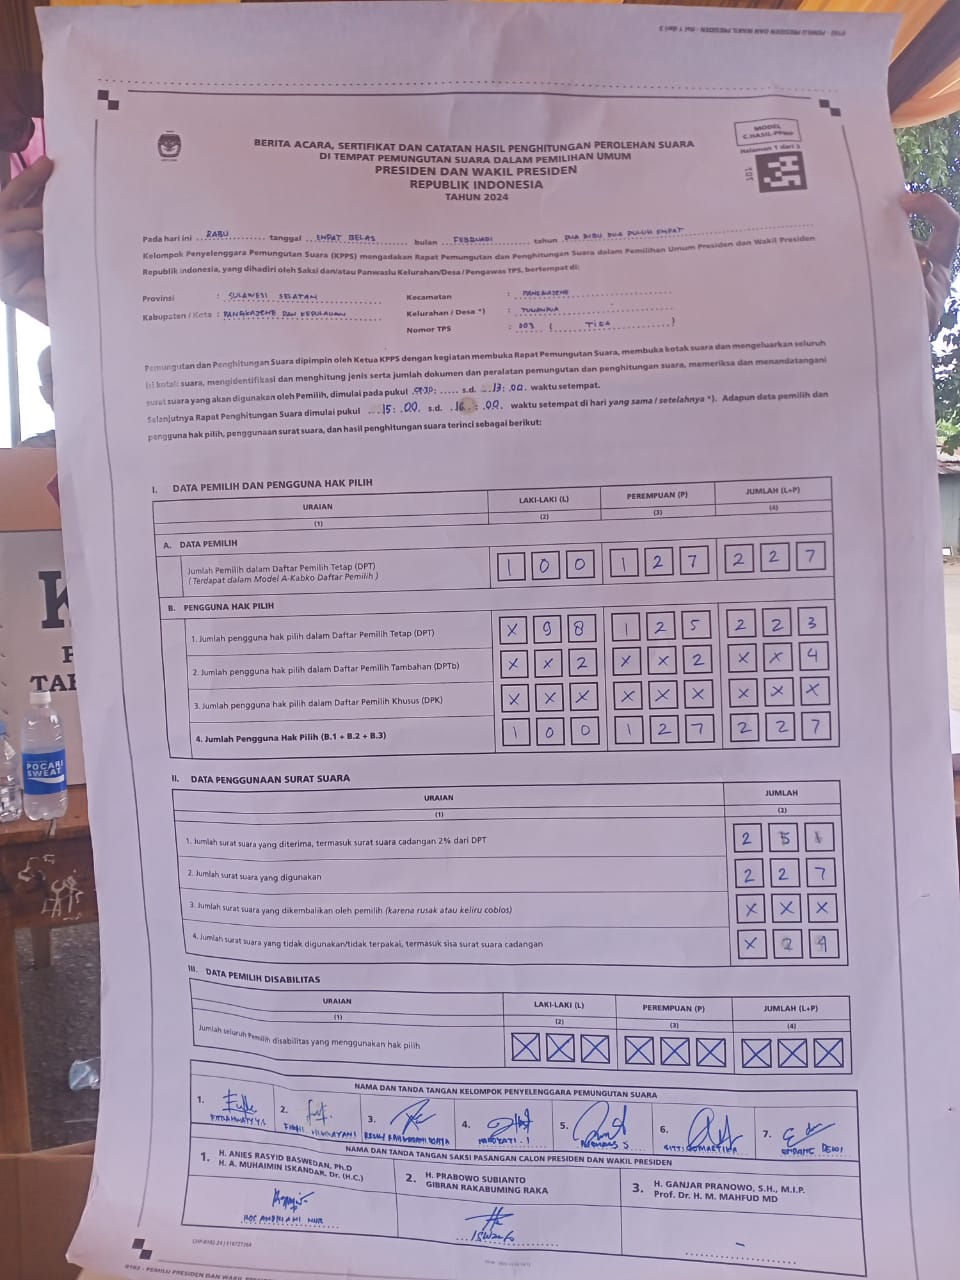 MODEL
C.HASIL-PPWP
Halaman 1 dari 3
101
BERITA ACARA, SERTIFIKAT DAN CATATAN HASIL PENGHITUNGAN PEROLEHAN SUARA
DI TEMPAT PEMUNGUTAN SUARA DALAM PEMILIHAN UMUM
PRESIDEN DAN WAKIL PRESIDEN
REPUBLIK INDONESIA
TAHUN 2024
Pada hari ini RABU tanggal EMPAT BELAS bulan FEBRUARI tahun DUA RIBU DUA PULUH EMPAT
Kelompok Penyelenggara Pemungutan Suara (KPPS) mengadakan Rapat Pemungutan dan Penghitungan Suara dalam Pemilihan Umum Presiden dan Wakil Presiden
Republik Indonesia, yang dihadiri oleh Saksi dan/atau Panwaslu Kelurahan/Desa / Pengawas TPS, bertempat di:
Provinsi : SULAWESI SELATAN Kecamatan : PANGKAJENE
Kabupaten / Kota : PANGKAJENE DAN KEPULAUAN Kelurahan / Desa *) :
Nomor TPS : 003 ( TIGA )
Pemungutan dan Penghitungan Suara dipimpin oleh Ketua KPPS dengan kegiatan membuka Rapat Pemungutan Suara, membuka kotak suara dan mengeluarkan seluruh
isi kotak suara, mengidentifikasi dan menghitung jenis serta jumlah dokumen dan peralatan pemungutan dan penghitungan suara, memeriksa dan menandatangani
surat suara yang akan digunakan oleh Pemilih, dimulai pada pukul s.d. 13 : 00. waktu setempat.
Selanjutnya Rapat Penghitungan Suara dimulai pukul 15 : 00. s.d. 16 : 00. waktu setempat di hari yang sama / setelahnya *). Adapun data pemilih dan
pengguna hak pilih, penggunaan surat suara, dan hasil penghitungan suara terinci sebagai berikut:
I. DATA PEMILIH DAN PENGGUNA HAK PILIH
URAIAN LAKI-LAKI (L) PEREMPUAN (P) JUMLAH (L+P)
(1) (2) (3) (4)
A. DATA PEMILIH
Jumlah Pemilih dalam Daftar Pemilih Tetap (DPT) 1 0 0 1 2 7 2 2 7
( Terdapat dalam Model A-Kabko Daftar Pemilih )
B. PENGGUNA HAK PILIH
1. Jumlah pengguna hak pilih dalam Daftar Pemilih Tetap (DPT) X 9 8 1 2 5 2 2 3
2. Jumlah pengguna hak pilih dalam Daftar Pemilih Tambahan (DPTb) X X 2 X X 2 X X 4
3. Jumlah pengguna hak pilih dalam Daftar Pemilih Khusus (DPK) X X X X X X X X X
4. Jumlah Pengguna Hak Pilih (B.1 + B.2 + B.3) 1 0 0 1 2 7 2 2 7
II. DATA PENGGUNAAN SURAT SUARA
URAIAN JUMLAH
(1) (2)
1. Jumlah surat suara yang diterima, termasuk surat suara cadangan 2% dari DPT 2 5 1
2. Jumlah surat suara yang digunakan 2 2 7
3. Jumlah surat suara yang dikembalikan oleh pemilih (karena rusak atau keliru coblos) X X X
4. Jumlah surat suara yang tidak digunakan/tidak terpakai, termasuk sisa surat suara cadangan X 2 4
III. DATA PEMILIH DISABILITAS
URAIAN LAKI-LAKI (L) PEREMPUAN (P) JUMLAH (L+P)
(1) (2) (3) (4)
Jumlah seluruh Pemilih disabilitas yang menggunakan hak pilih X X X X X X X X X
NAMA DAN TANDA TANGAN KELOMPOK PENYELENGGARA PEMUNGUTAN SUARA
1. 2. 3. 4. 5. 6. 7.
ENDANG DEWI
NAMA DAN TANDA TANGAN SAKSI PASANGAN CALON PRESIDEN DAN WAKIL PRESIDEN
1. H. ANIES RASYID BASWEDAN, Ph.D
H. A. MUHAIMIN ISKANDAR, Dr. (H.C.)
2. H. PRABOWO SUBIANTO
GIBRAN RAKABUMING RAKA
3. H. GANJAR PRANOWO, S.H., M.I.P.
Prof. Dr. H. M. MAHFUD MD
POCARI
SWEAT